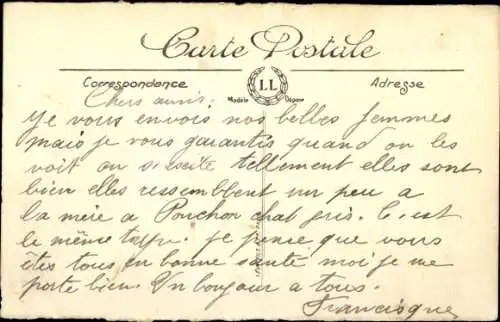 Carte Postale
Correspondance
LL
Modèle Déposé
Adresse
Chers amis:
Je vous envois nos belles femmes
mais je vous garantis quand on les
voit on s'excite tellement elles sont
bien elles ressemblent un peu a
la mère a Ponchon chat gris. C'est
le même type. je pense que vous
êtes tous en bonne santé moi je me
porte bien. Un bonjour a tous.
Francisque